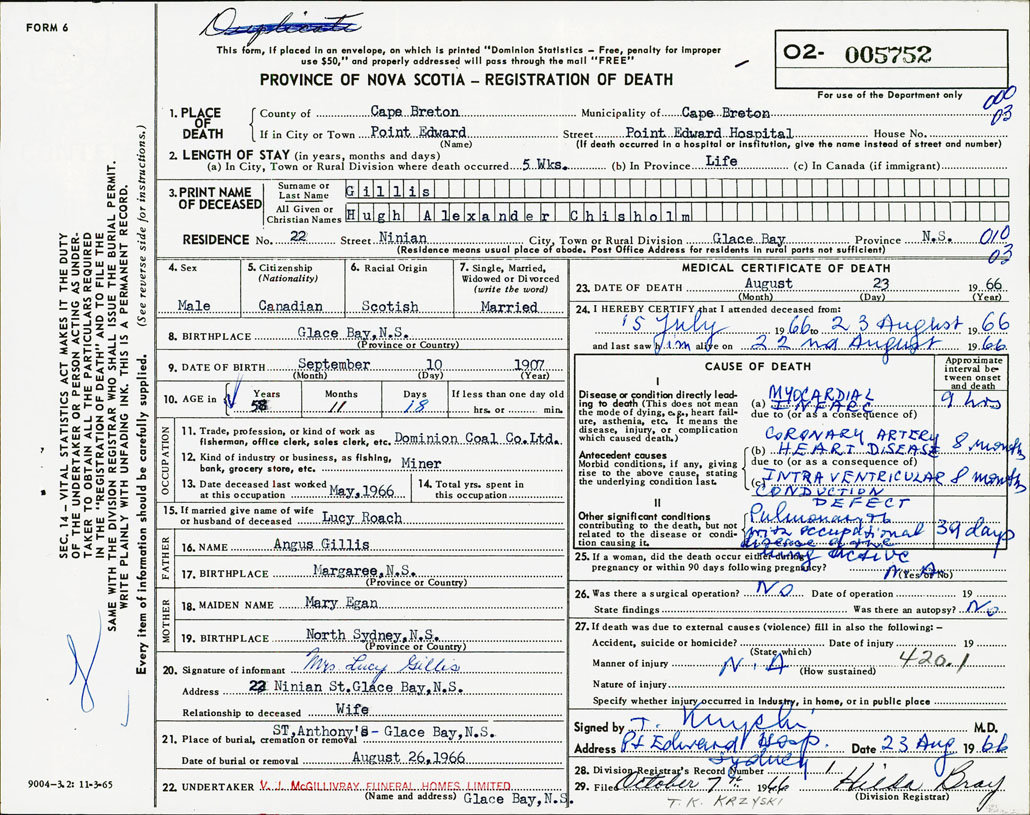 FORM 6
Duplicate
This form, if placed in an envelope, on which is printed "Dominion Statistics – Free, penalty for improper
use $50," and properly addressed will pass through the mail "FREE"
PROVINCE OF NOVA SCOTIA – REGISTRATION OF DEATH
02- 005752
For use of the Department only
000
03
1. PLACE OF DEATH
County of Cape Breton Municipality of Cape Breton
If in City or Town Point Edward Street Point Edward Hospital House No.
(Name) (If death occurred in a hospital or institution, give the name instead of street and number)
2. LENGTH OF STAY (in years, months and days)
(a) In City, Town or Rural Division where death occurred 5 Wks. (b) In Province Life (c) In Canada (if immigrant)
3. PRINT NAME OF DECEASED
Surname or Last Name Gillis
All Given or Christian Names Hugh Alexander Chisholm
RESIDENCE No. 22 Street Ninian City, Town or Rural Division Glace Bay Province N.S.
(Residence means usual place of abode. Post Office Address for residents in rural parts not sufficient)
010
03
4. Sex
Male
5. Citizenship
(Nationality)
Canadian
6. Racial Origin
Scotish
7. Single, Married,
Widowed or Divorced
(write the word)
Married
8. BIRTHPLACE Glace Bay,N.S.
(Province or Country)
9. DATE OF BIRTH September 10 1907
(Month) (Day) (Year)
10. AGE in Years Months Days If less than one day old
58 11 18 hrs. or min.
OCCUPATION
11. Trade, profession, or kind of work as
fisherman, office clerk, sales clerk, etc. Dominion Coal Co.Ltd.
12. Kind of industry or business, as fishing,
bank, grocery store, etc. Miner
13. Date deceased last worked
at this occupation May,1966
14. Total yrs. spent in
this occupation
15. If married give name of wife
or husband of deceased Lucy Roach
FATHER
16. NAME Angus Gillis
17. BIRTHPLACE Margaree,N.S.
(Province or Country)
MOTHER
18. MAIDEN NAME Mary Egan
19. BIRTHPLACE North Sydney,N.S.
(Province or Country)
20. Signature of informant Mrs. Lucy Gillis
Address 22 Ninian St.Glace Bay,N.S.
Relationship to deceased Wife
21. Place of burial, cremation or removal ST,Anthony's - Glace Bay,N.S.
Date of burial or removal August 26,1966
22. UNDERTAKER V. J. McGILLIVRAY FUNERAL HOMES LIMITED
(Name and address) Glace Bay,N.S.
MEDICAL CERTIFICATE OF DEATH
23. DATE OF DEATH August 23 1966
(Month) (Day) (Year)
24. I HEREBY CERTIFY that I attended deceased from:
15 July 1966 to 23 August 1966
and last saw him alive on 22nd August 1966
CAUSE OF DEATH
Approximate
interval be-
tween onset
and death
I
Disease or condition directly lead-
ing to death (This does not mean
the mode of dying, e.g., heart fail-
ure, asthenia, etc. It means the
disease, injury, or complication
which caused death.)
(a) MYOCARDIAL
INFARC 9 hrs
due to (or as a consequence of)
Antecedent causes
Morbid conditions, if any, giving
rise to the above cause, stating
the underlying condition last.
CORONARY ARTERY 8 months
(b) HEART DISEASE
due to (or as a consequence of)
(c) INTRAVENTRICULAR 8 months
CONDUCTION
DEFECT
II
Other significant conditions
contributing to the death, but not
related to the disease or condi-
tion causing it.
Pulmonary Tb
with occupational 39 days
disease
active
25. If a woman, did the death occur either during
pregnancy or within 90 days following pregnancy? N. A.
(Yes or No)
26. Was there a surgical operation? No Date of operation 19
State findings Was there an autopsy? No
27. If death was due to external causes (violence) fill in also the following: –
Accident, suicide or homicide? Date of injury 19
(State which)
Manner of injury N.A 420.1
(How sustained)
Nature of injury
Specify whether injury occurred in Industry, in home, or in public place
Signed by T. M.D.
Address Pt Edward Hosp. Date 23 Aug 1966
Sydney
28. Division Registrar's Record Number 1
29. Filed October 7th 1966 Hilda Bray
(Division Registrar)
T. K. KRZYSKI
SEC. 14 – VITAL STATISTICS ACT MAKES IT THE DUTY
OF THE UNDERTAKER OR PERSON ACTING AS UNDER-
TAKER TO OBTAIN ALL THE PARTICULARS REQUIRED
IN THE "REGISTRATION OF DEATH" AND TO FILE THE
SAME WITH THE DIVISION REGISTRAR WHO SHALL ISSUE THE BURIAL PERMIT.
WRITE PLAINLY WITH UNFADING INK. THIS IS A PERMANENT RECORD.
Every item of information should be carefully supplied. (See reverse side for instructions.)
9004-3.2: 11-3-65